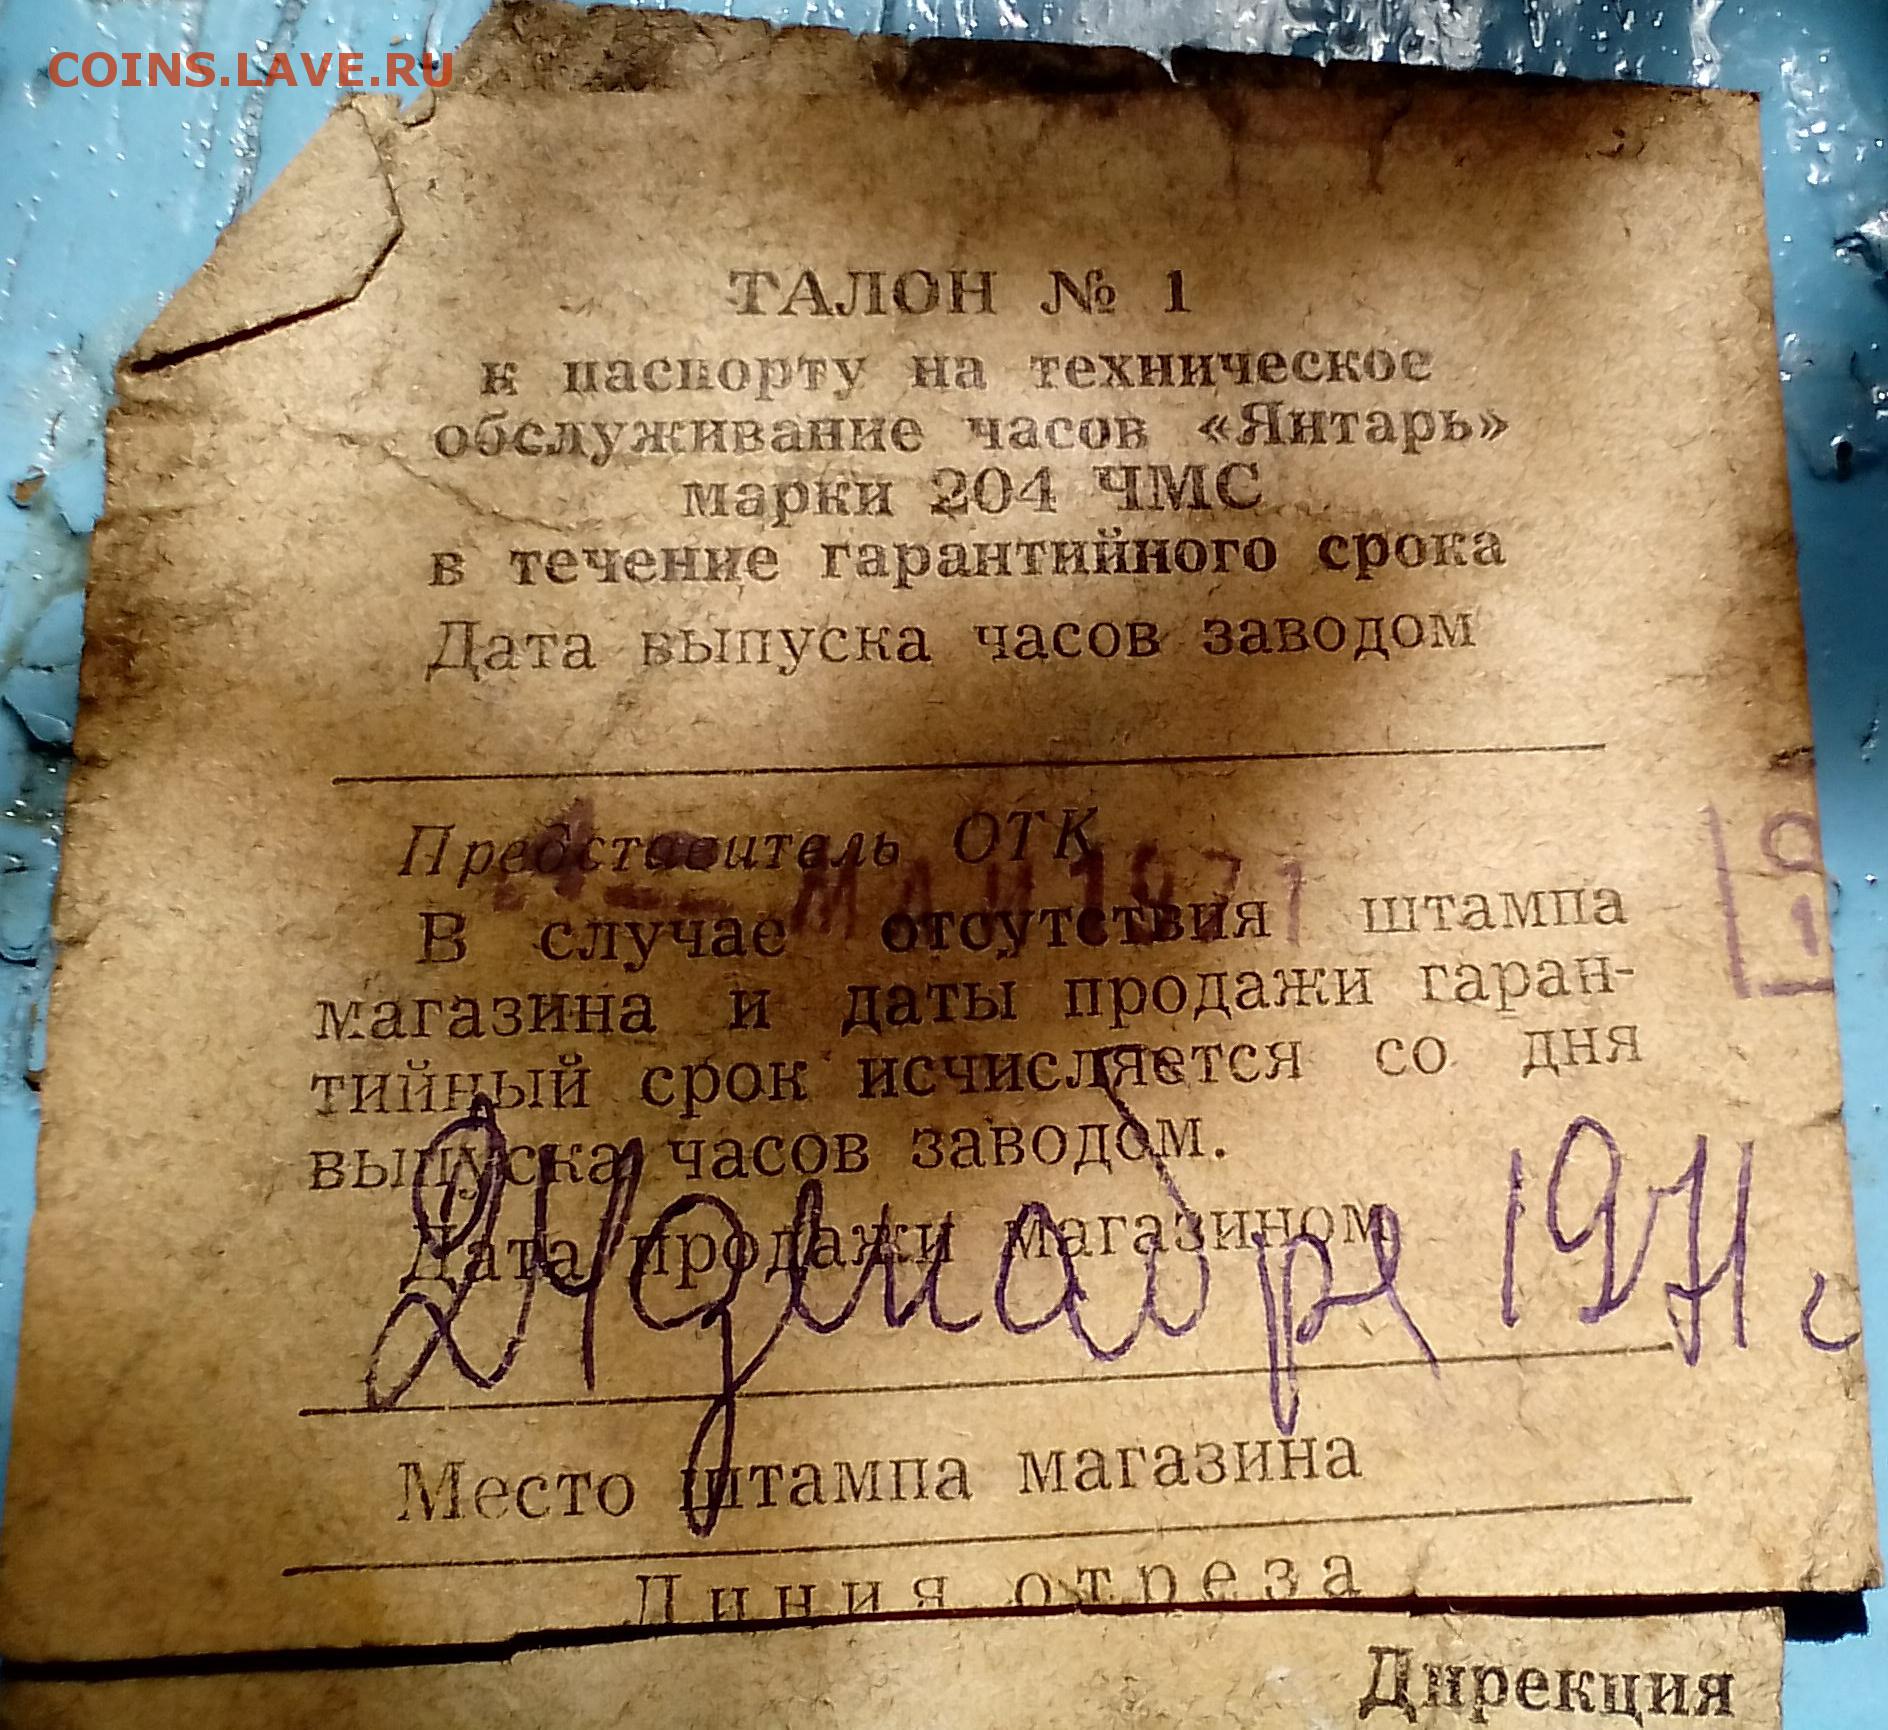 COINS.LAVE.RU
ТАЛОН № 1
к паспорту на техническое
обслуживание часов «Янтарь»
марки 204 ЧМС
в течение гарантийного срока
Дата выпуска часов заводом
Представитель ОТК
МАЙ 1971
В случае отсутствия штампа
магазина и даты продажи гаран-
тийный срок исчисляется со дня
выпуска часов заводом.
Дата продажи магазином
24 декабря 1971 г
Место штампа магазина
Линия отреза
Дирекция